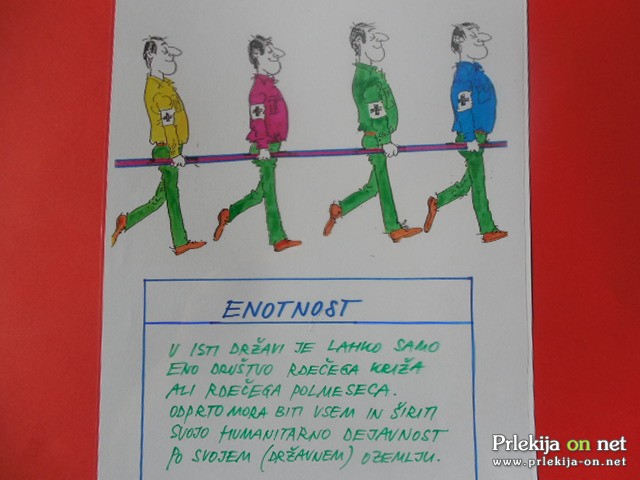 ENOTNOST
V ISTI DRŽAVI JE LAHKO SAMO
ENO DRUŠTVO RDEČEGA KRIŽA
ALI RDEČEGA POLMESECA.
ODPRTO MORA BITI VSEM IN ŠIRITI
SVOJO HUMANITARNO DEJAVNOST
PO SVOJEM (DRŽAVNEM) OZEMLJU.
Prlekija on net
www.prlekija-on.net